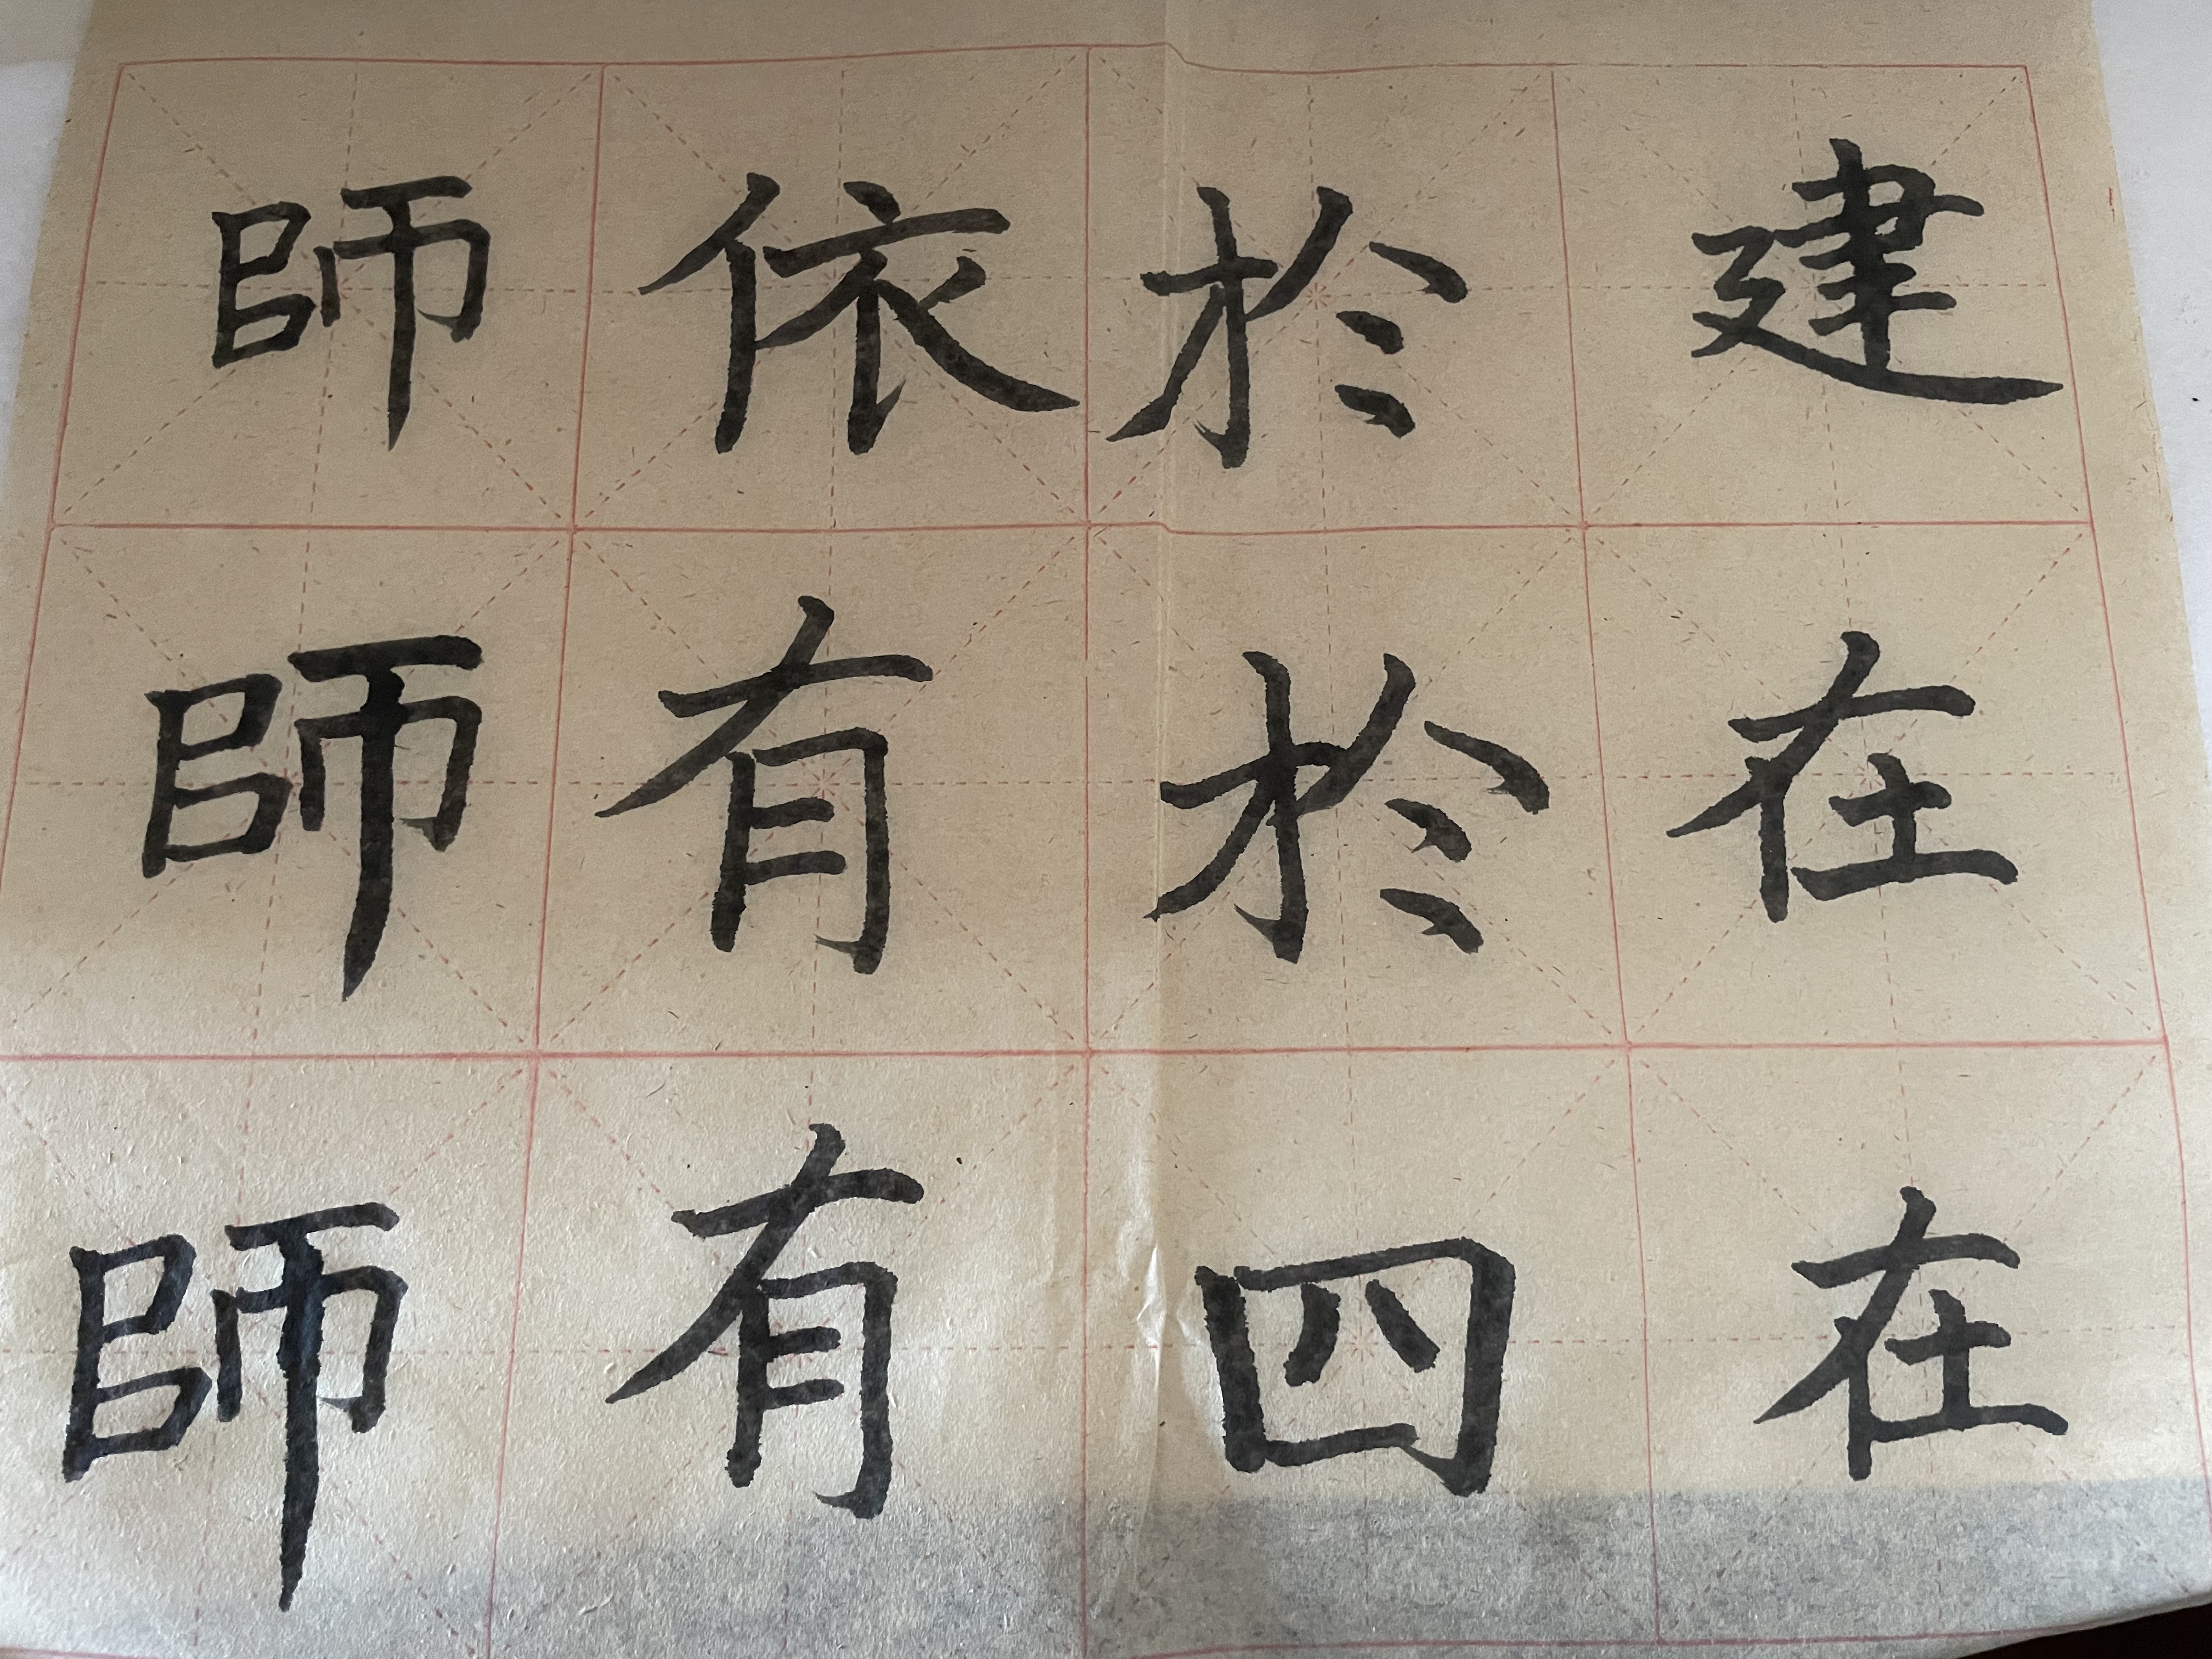 建在在
於於四
依有有
師師師